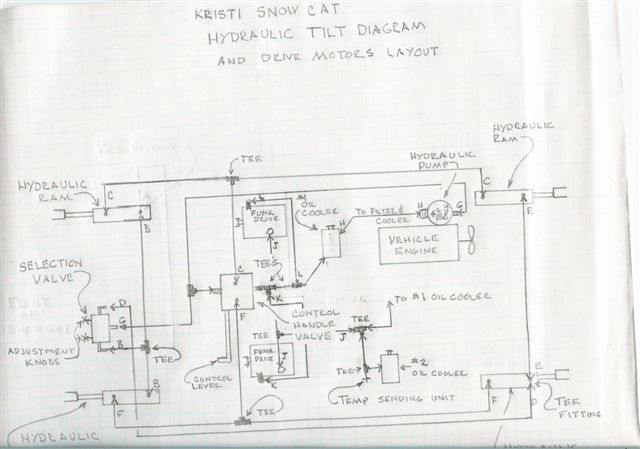 KRISTI SNOW CAT
HYDRAULIC TILT DIAGRAM
AND DRIVE MOTORS LAYOUT
HYDRAULIC
RAM
C
B
TEE
HYDRAULIC
PUMP
HYDRAULIC
RAM
C
E
#1
OIL
COOLER
TO FILTER &
COOLER
H
G
H
L
FUNK
DRIVE
J
VEHICLE
ENGINE
SELECTION
VALVE
D
G
B
ADJUSTMENT
KNOBS
TEE
C
F
TEE'S
L
K
CONTROL
HANDLE
VALVE
CONTROL
LEVER
TO #1 OIL COOLER
TEE
TEE
J
FUNK
DRIVE
J
K
TEE
#2
OIL COOLER
TEMP SENDING UNIT
B
F
TEE
F
E
D
TEE
FITTING
HYDRAULIC
HYDRAULIC